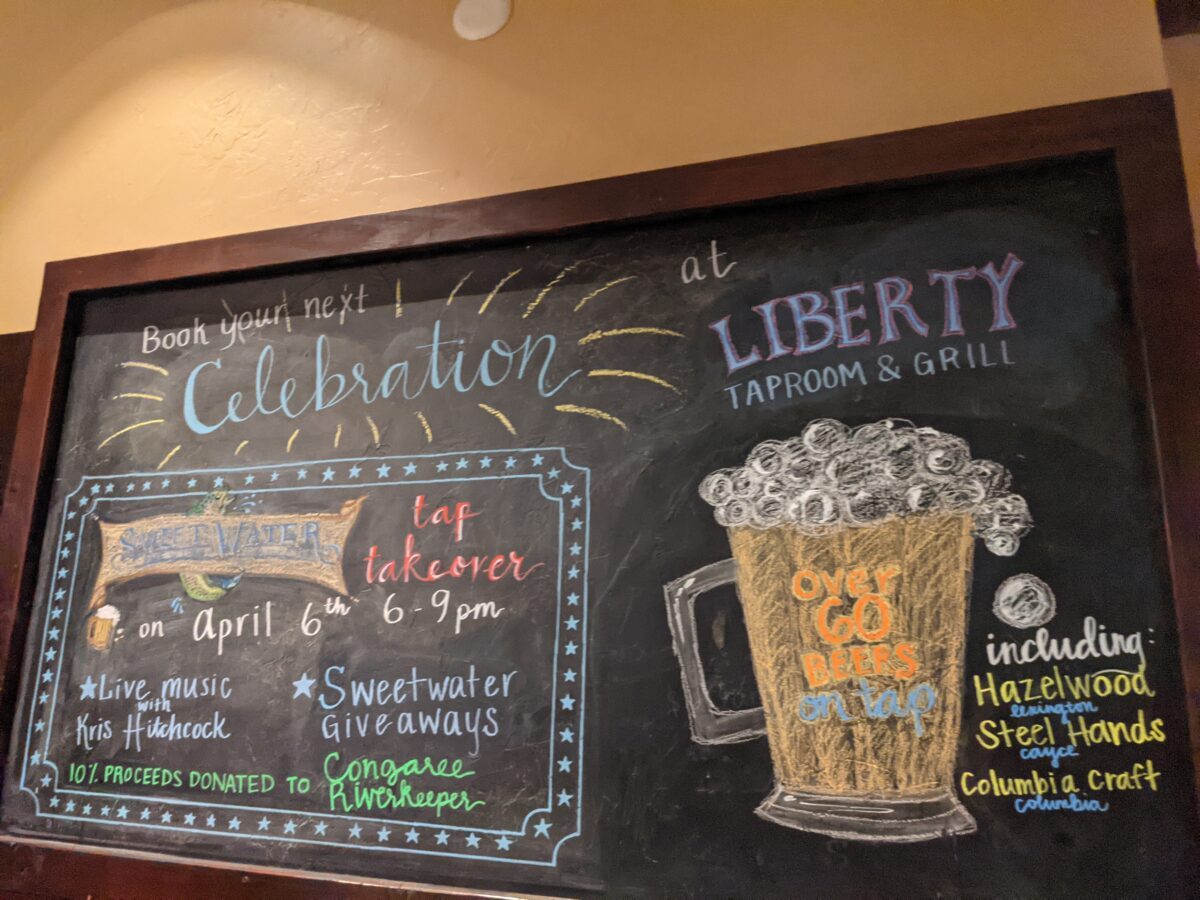 Book your next
Celebration
at
LIBERTY
TAPROOM & GRILL
SWEETWATER
tap
takeover
on April 6th 6-9pm
Live music
with
Kris Hitchcock
Sweetwater
Giveaways
10% PROCEEDS DONATED TO Congaree
Riverkeeper
Over
60
BEERS
on tap
including:
Hazelwood
lexington
Steel Hands
cayce
Columbia Craft
columbia